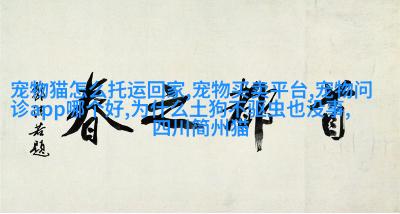 宠物猫怎么托运回家,宠物买卖平台,宠物问
诊app哪个好,为什么土狗不驱虫也没事,
四川简州猫
首都之春
若题